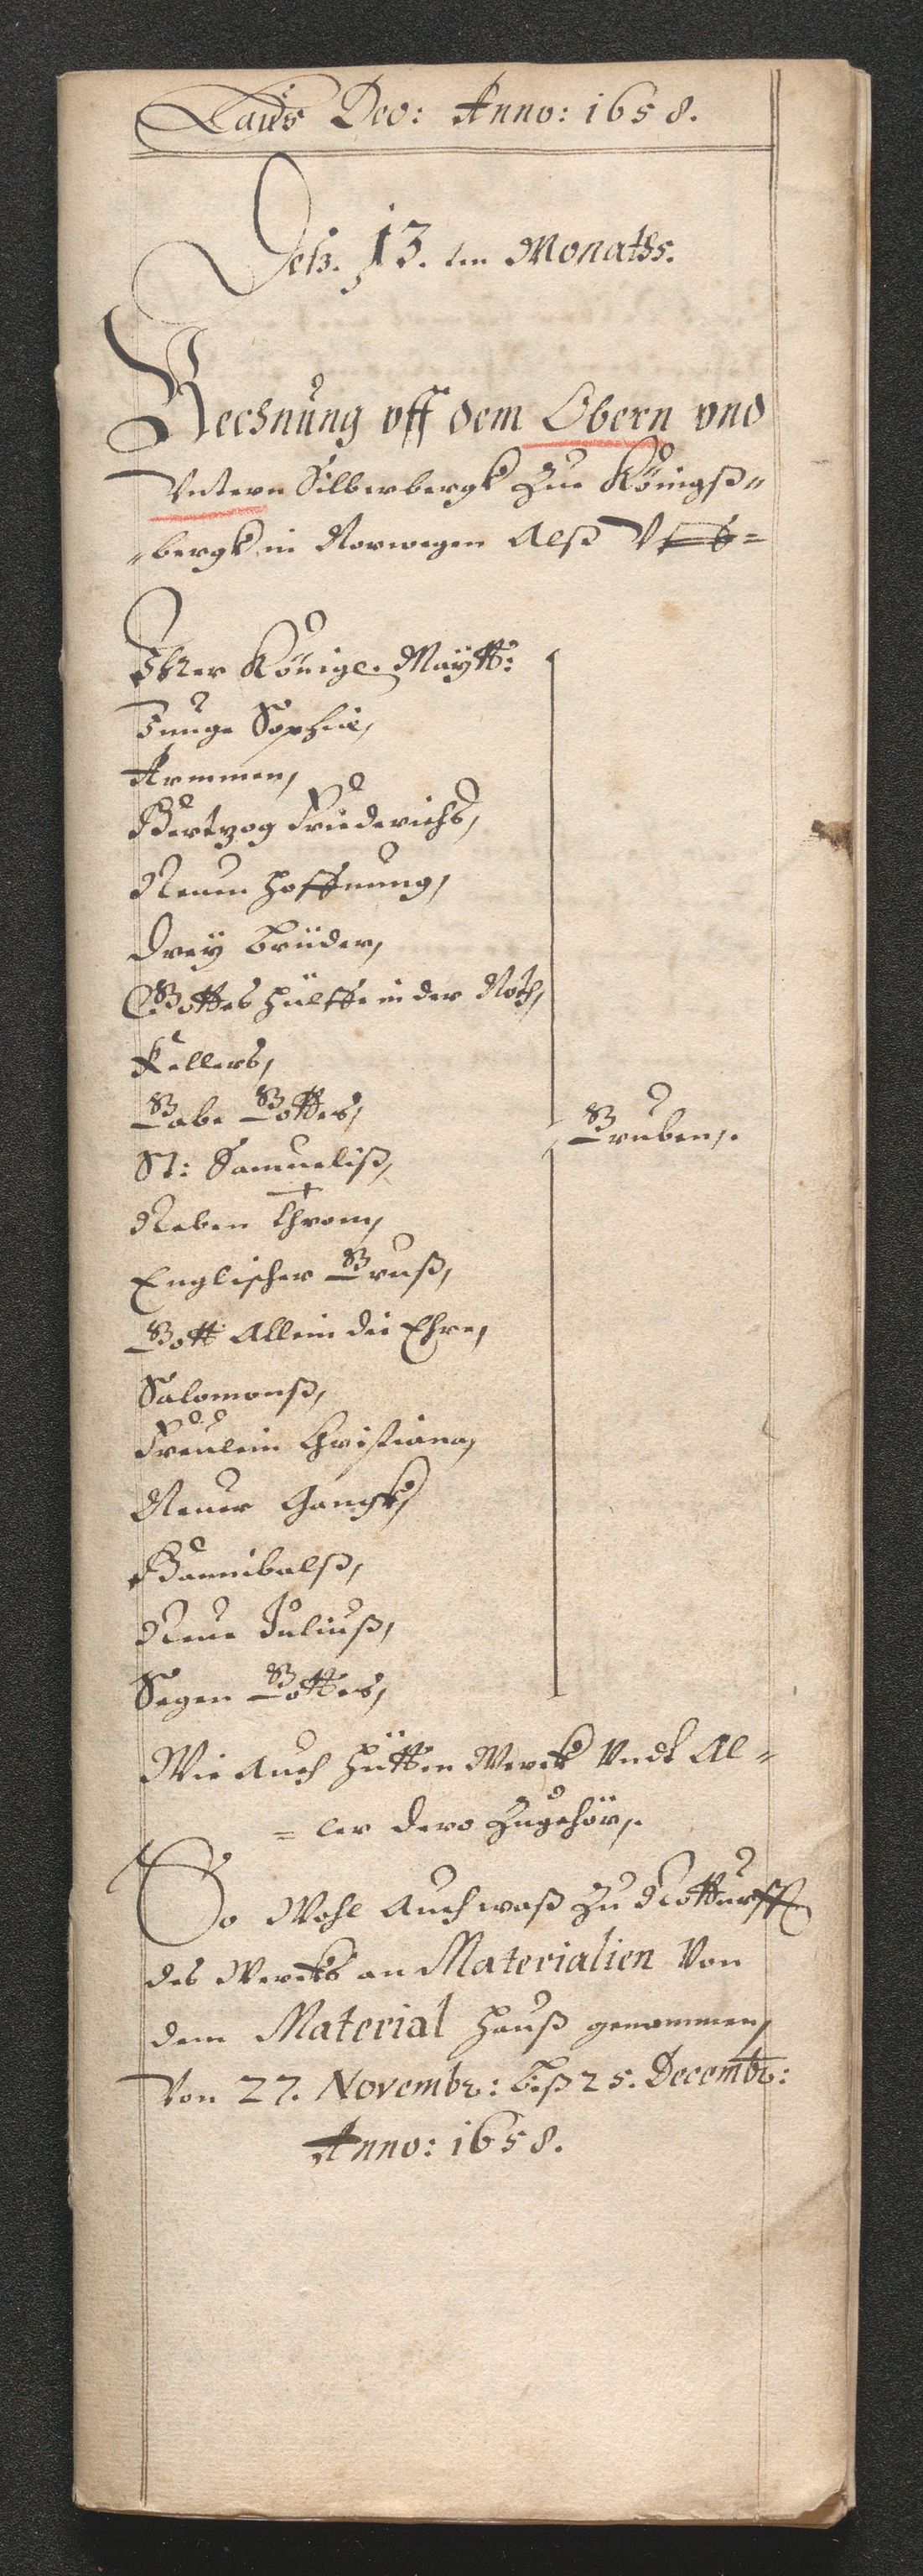 Laus Deo: Anno: 1658.
Deß. 13. ten Monaths.
Rechnung vff dem Obern vnd
Vntern Silberbergk Zue Königß„
„bergk in Norwegen Alß Vff=
Ihrer Königl. Maÿtt:
Junge Sophie,
Armmen,
Hertzog Friederichs,
Neuen Hoffnung,
Dreÿ Brüder,
Gottes Hülffe in der Noth,
Kellers,
Gabe Gottes,
Gruben,.
St: Samueliß,
Neben Throm,
Englischer Gruß,
Gott Allein die Ehre,
Salomonß,
Freulein Christiana,
Neuer Gangk,
Hannibalß,
Neue Juliuß,
Segen Gottes,
Wie Auch Hütten Werck Vndt Al=
=ler dero Zugehör,.
So Wohl Auch waß Zu Notturfft
des Wercks an Materialien Von
dem Material Hauß genommen,
Von 27. Novembr: Biß 25. Decembr:
Anno: 1658.